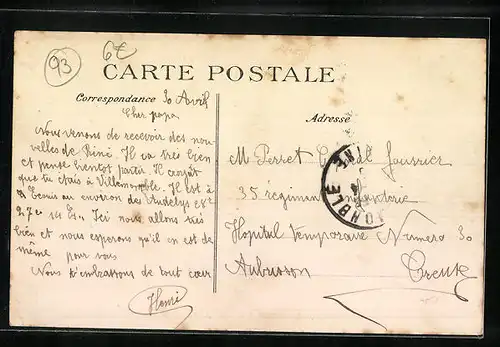 93
6€
CARTE POSTALE
Correspondance 30 Avril
Adresse
Cher papa
Nous venons de recevoir des nou
velles de René. Il va très bien
et pense bientôt partir. Il croyait
que tu étais à Villemomble. Il est à
au environ des Andelys
27e Ici nous allons très
bien et nous esperons qu'il en est de
même pour vous
Nous t'embrassons de tout cœur
Henri
M. Perret Caporal fourrier
35 régiment Infanterie
Hopital Temporaire Numero 30
Aubusson Creuse
OMBLE